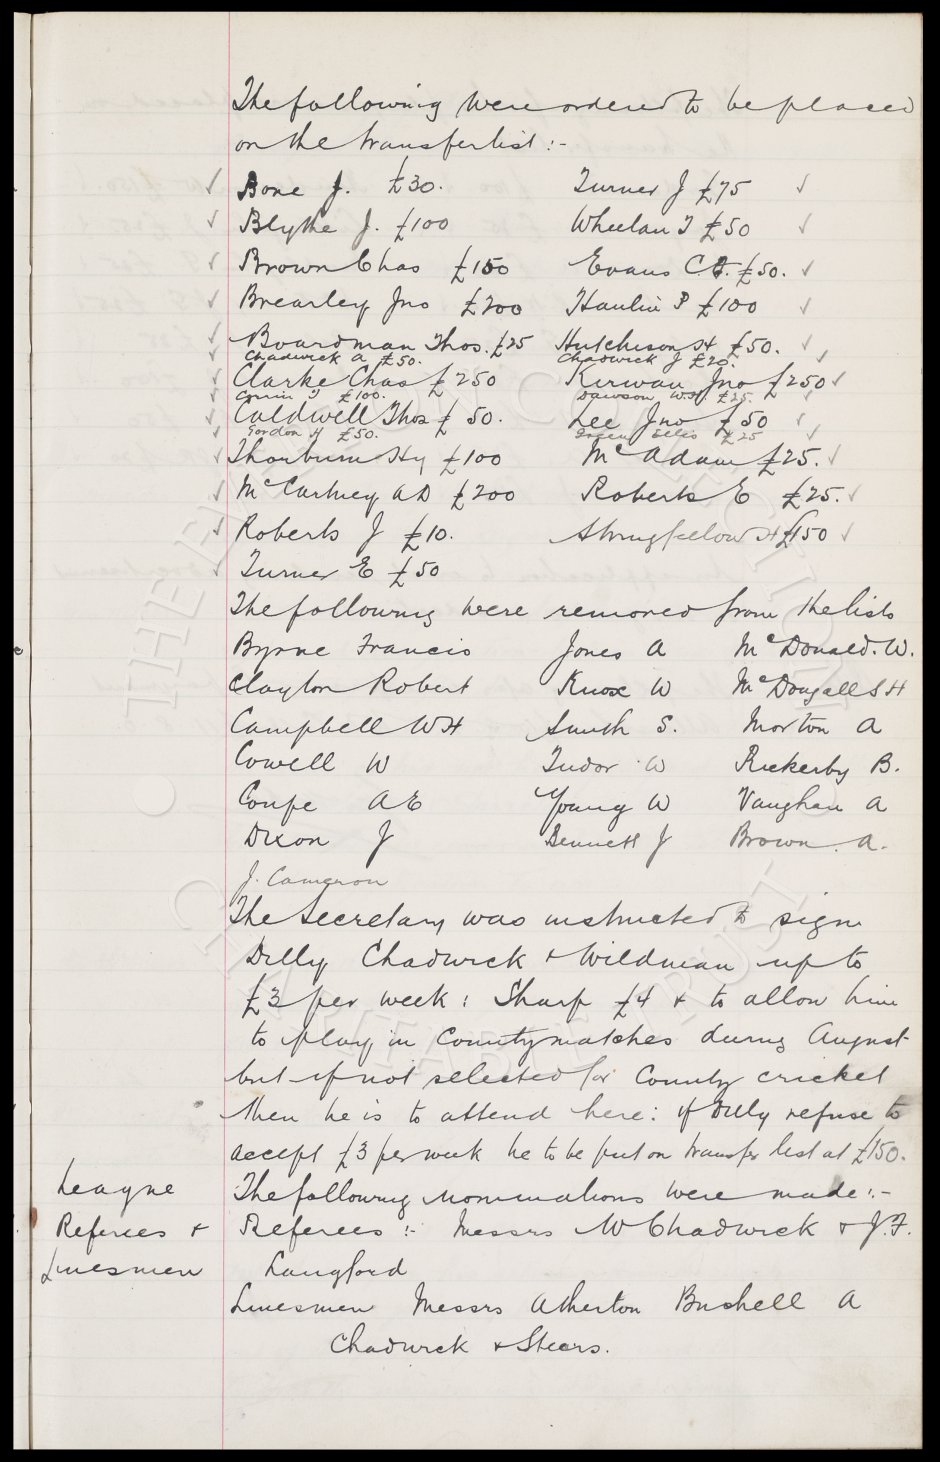 The following were ordered to be placed
on the transfer list :-
Bone J. £30. Turner J £75
Blythe J. £100 Wheelan T £50
Brown Chas £150 Evans C E. £50.
Brearley Jno £200 Hanlin P £100
Boardman Thos. £25 Hutchison H £50.
Chadwick A £50. Chadwick J £20.
Clarke Chas £250 Kirwan Jno £250
Corrin T £100. Dawson W.H £25.
Caldwell Thos £50. Lee Jno £50
Gordon H £50. Green Ellis £25
Thorburn Hy £100 McAdam £25.
McCartney AD £200 Roberts E £25.
Roberts J £10. Stringfellow H £150
Turner E £50
The following were removed from the lists
Byrne Francis Jones A McDonald. W.
Clayton Robert Knox W McDougall S H
Campbell W H Smith S. Morton A
Cowell W Tudor W Rickerby B.
Coupe A E Young W Vaughan A
Dixon J Bennett J Brown. A.
J. Cameron
The Secretary was instructed to sign
Dilly Chadwick & Wildman up to
£3 per week : Sharp £4 & to allow him
to play in County matches during August
but if not selected for County cricket
then he is to attend here : if Dilly refuse to
accept £3 per week he to be put on transfer list at £150.
League The following nominations were made :-
Referees & Referees :- Messrs W Chadwick & J.F.
Linesmen Langford
Linesmen Messrs Atherton Bushell A
Chadwick & Steers.